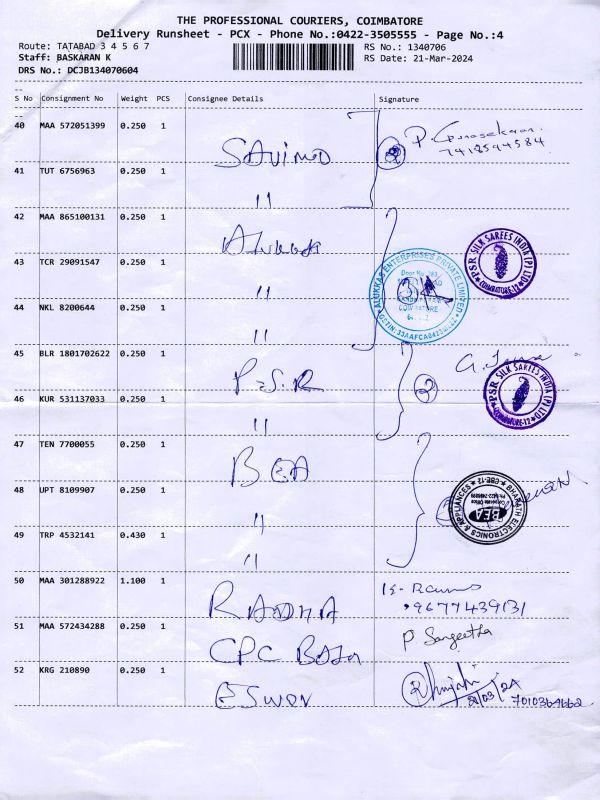 THE PROFESSIONAL COURIERS, COIMBATORE
Delivery Runsheet - PCX - Phone No.:0422-3505555 - Page No.:4
Route: TATABAD 3 4 5 6 7
RS No.: 1340706
Staff: BASKARAN K
RS Date: 21-Mar-2024
DRS No.: DCJB134070604
S No Consignment No Weight PCS Consignee Details Signature
40 MAA 572051399 0.250 1
P. Gunasekaran.
41 TUT 6756963 0.250 1 "
42 MAA 865100131 0.250 1
PSR SILK SAREES INDIA (P) LTD COIMBATORE-12
43 TCR 29091547 0.250 1 "
ALUKKAS ENTERPRISES PRIVATE LIMITED
COIMBATORE
44 NKL 8200644 0.250 1 "
45 BLR 1801702622 0.250 1 P.S.R 2
46 KUR 531137033 0.250 1 "
PSR SILK SAREES INDIA (P) LTD COIMBATORE-12
47 TEN 7700055 0.250 1 BEA
48 UPT 8109907 0.250 1 "
BHARATH ELECTRONICS & APPLIANCES CBE-12
Corporate Office
BEA
49 TRP 4532141 0.430 1 "
50 MAA 301288922 1.100 1 RADHA
9677439131
51 MAA 572434288 0.250 1 CPC
P Sangeetha
52 KRG 210890 0.250 1 ESWAR
7010364662